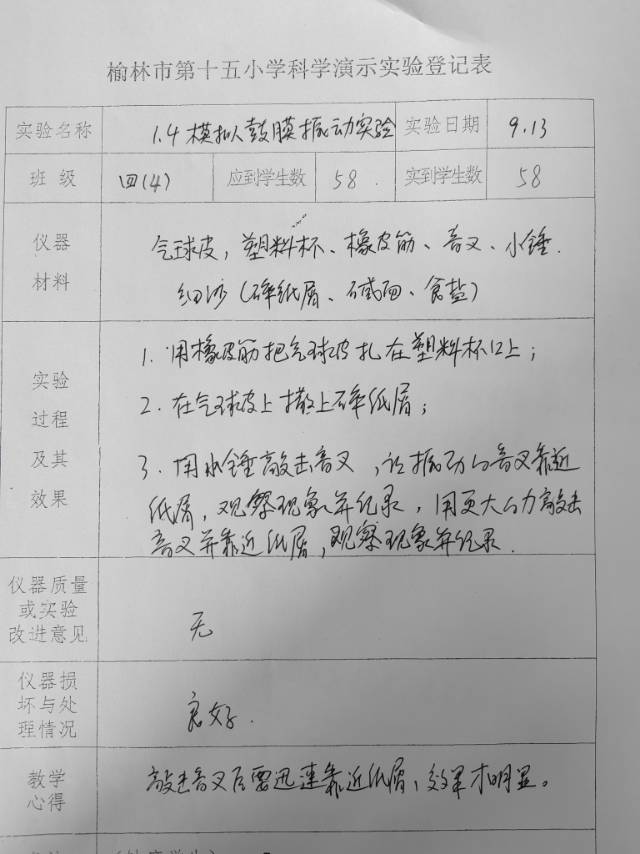 榆林市第十五小学科学演示实验登记表
实验名称 1.4 模拟鼓膜振动实验 实验日期 9.13
班级 四(4) 应到学生数 58. 实到学生数 58
仪器材料 气球皮,塑料杯、橡皮筋、音叉、小锤.
细沙(碎纸屑、碱面、食盐)
实验过程及其效果
1. 用橡皮筋把气球皮扎在塑料杯口上;
2. 在气球皮上撒上碎纸屑;
3. 用小锤敲击音叉,让振动的音叉靠近
纸屑,观察现象并纪录,用更大的力敲击
音叉并靠近纸屑,观察现象并纪录.
仪器质量或实验改进意见 无
仪器损坏与处理情况 良好.
教学心得 敲击音叉后需迅速靠近纸屑,效果才明显。